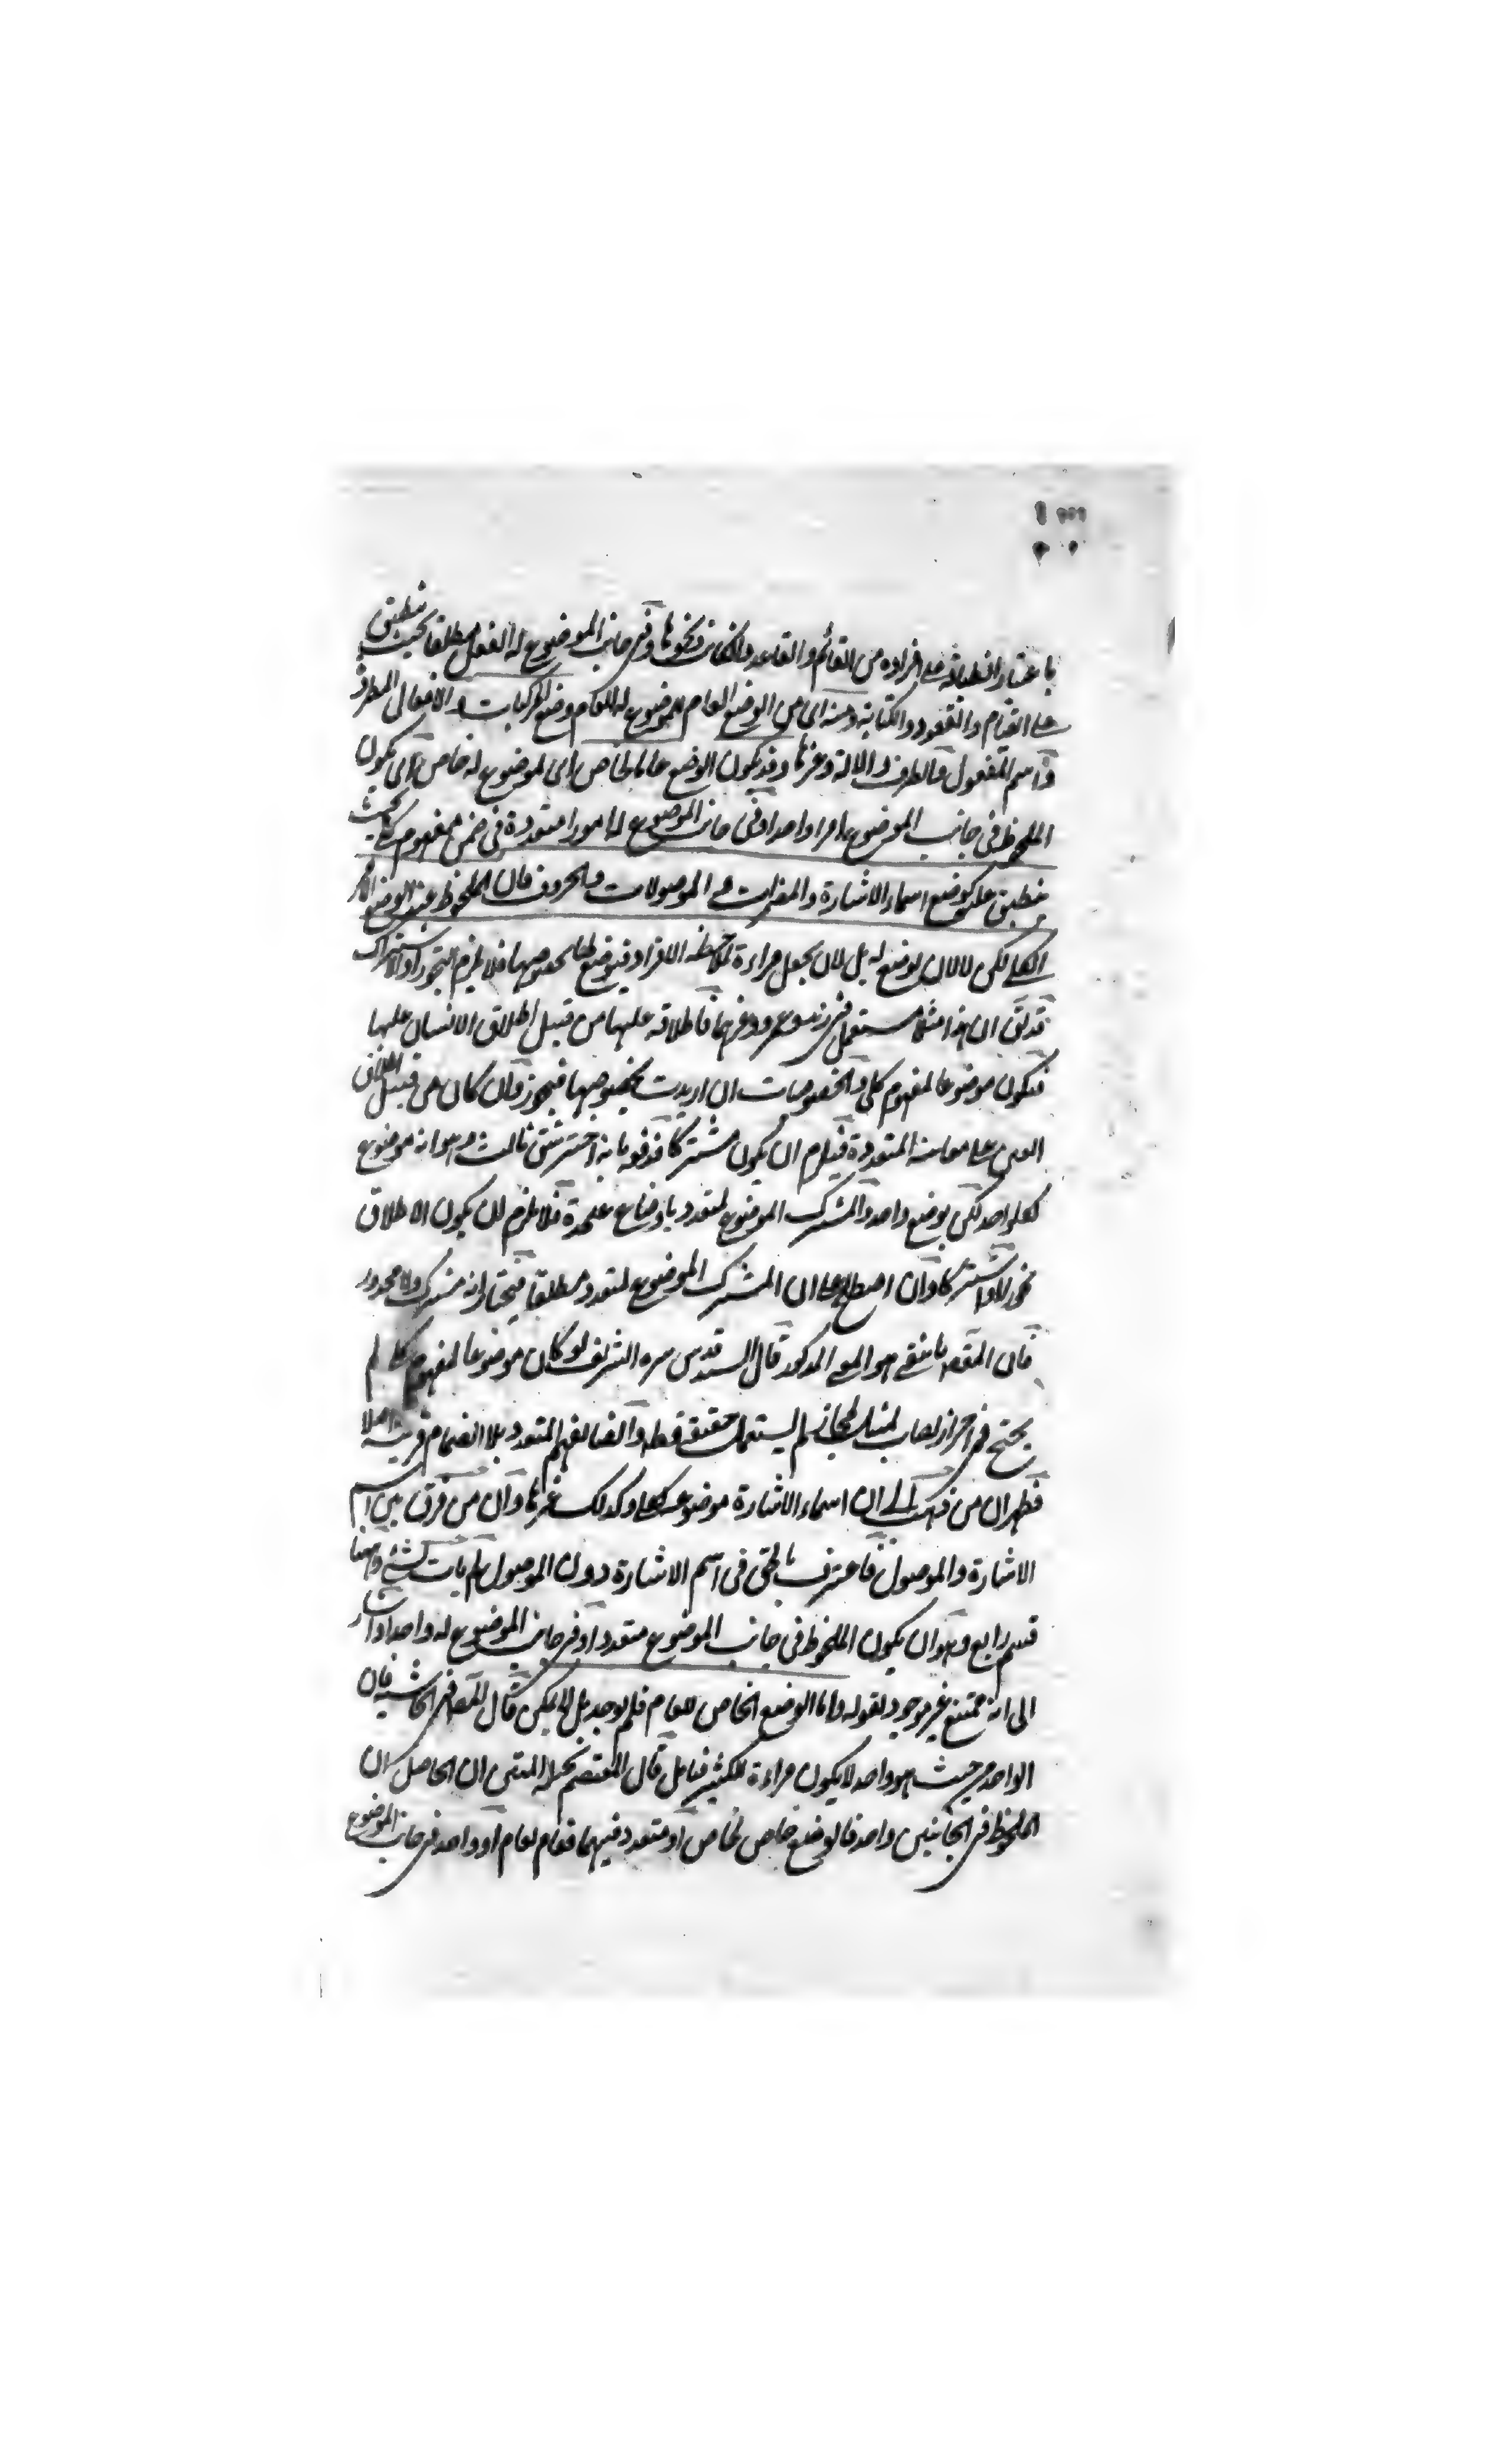 باعتبار انطباقه على افراده من القائم والقاعد والكاتب ونحوها وفي جانب الموضوع له الفعل مطلقا بحيث ينطبق
على القيام والقعود والكتابة ومنه اى من الوضع العام للموضوع له العام وضع المركبات والافعال المطلقة
واسم المفعول والظرف والالة وغيرها وقد يكون الوضع عاما لخاص اى لموضوع له خاص اى يكون
الملحوظ في جانب الموضوع امرا واحدا وفي جانب الموضوع له امورا متعددة في ضمن مفهوم كلى بحيث
ينطبق عليها كوضع اسماء الاشارة والمضمرات و الموصولات والحروف فان الملحوظ عند الوضع الامر
الكلي لكن لا لان يوضع له بل لان يجعل مراءة لملاحظة الافراد فيوضع لها بخصوصها فلا يلزم التجوز او الاشتراك
قد يق ان هذا مثلا مستعمل في زيد وعمرو وغيرهما فاطلاقه عليها من قبيل اطلاق الانسان عليها
فيكون موضوعا لمفهوم كلى والخصوصيات ان اريدت بخصوصها فيجوز وان كان من قبيل اطلاق
العين على معانيه المتعددة فيلزم ان يكون مشتركا فدفعه بانه اختير شق ثالث وهو انه موضوع
لكل واحد لكن بوضع واحد والمشترك الموضوع لمتعدد باوضاع عديدة فلا يلزم ان يكون الاطلاق
تجوزا او اشتراكا وان اصطلح على ان المشترك الموضوع لمتعدد مطلقا فيختار انه مشترك ولا محذور
فان المقصود ما ينفي هو المعنى المذكور قال السيد قدس سره الشريف لو كان موضوعا لمفهوم كلى لم
يحتج في احراز لمثل لمجاز لم يستعمل حقيقة قط وايضا لفهم المتعدد بلا انضمام قرينة اصلا
فظهر ان من ذهب الى ان اسماء الاشارة موضوعة لكلى وكذلك غيرها وان من فرق بين اسم
الاشارة والموصول فاعترف بالحق في اسم الاشارة دون الموصول لم يات بشئ وههنا
قسم رابع وهو ان يكون الملحوظ في جانب الموضوع متعددا وفي جانب الموضوع له واحدا واشار
الى انه ممتنع غير موجود بقوله واما الوضع الخاص للعام فلم يوجد بل لا يمكن قال المص في الحاشية فان
الواحد من حيث هو واحد لا يكون مراءة للكثير فتامل قال المعتصم بحبل الله المتين ان الحاصل ان
الملحوظ في الجانبين واحد فالوضع خاص لخاص او متعدد فيهما فعام لعام او واحد في جانب الموضوع